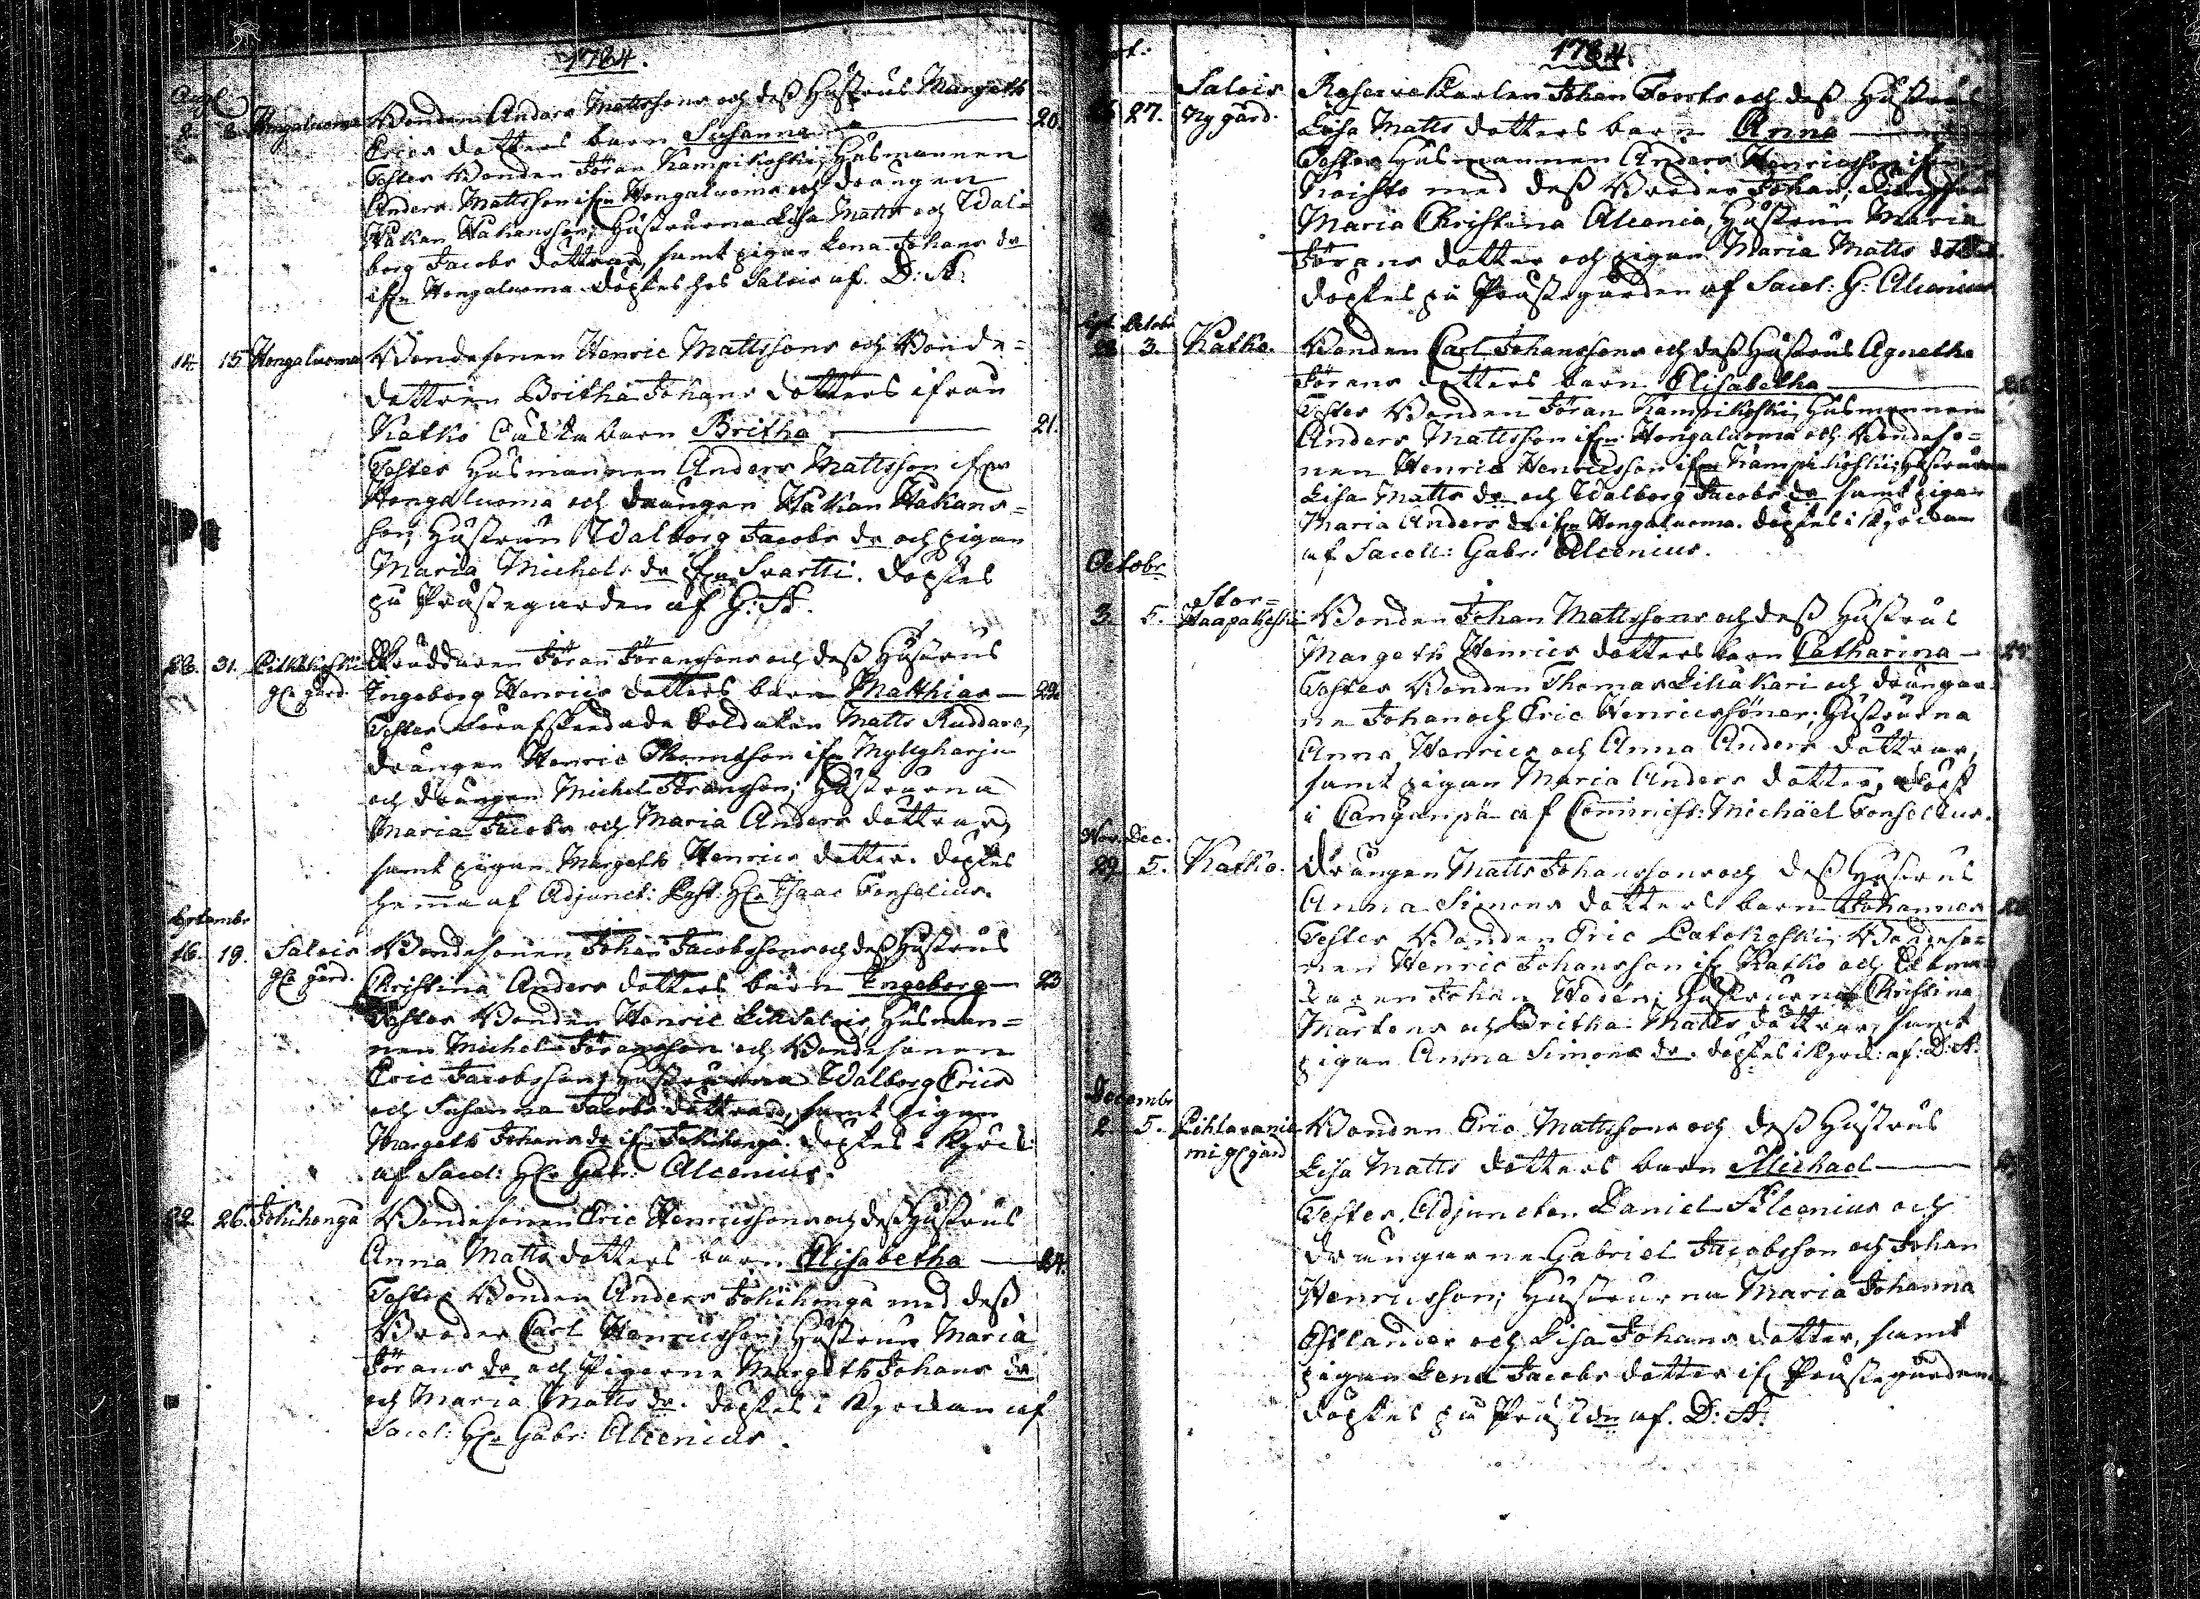 1784.
Aug:
2. 8. Hongaluoma Bonden Anders Mattssons och dess Hustrus Margeth
Erics dotters barn Susanna 20
Testes Bonden Jöran Kampikoski, Husmannen
Anders Mattsson ifrn Hongaluoma och drängen
Håkan Håkansson; Hustrurna Lisa Matts och Wal-
borg Jacobs döttrar, samt pigan Lena Johans dr
ifrn Hongaluoma. döptes hos Salois af D: A:
14. 15. Hongaluoma Bondesonen Henric Mattssons och Bonde-
dottren Britha Johans dotters ifrån
Katko barn Britha 21.
Testes Husmannen Anders Mattsson ifrn
Hongaluoma och drängen Håkan Håkans-
son; Hustrun Walborg Jacobs dr och pigan
Maria Michels dr ifrn Svartti. döptes
på Prästegården af G: A.
28. 31. Jöran Jöranssons och dess Hustrus
gl. gård. Ingeborg Henrics dotters barn Matthias 22
Testes afskedade Soldaten Matts Ruddare,
drängen Henric Thomasson ifrn Myllyharju
och drängen Michel Jöransson; Hustrurna
Maria Jacobs och Maria Anders döttrar,
samt pigan Margeth Henrics dotter. döptes
hemma af Adjunct: Past: Hr Isaac Fonselius.
Septembr
16. 19. Salois Bondesonen Johan Jacobssons och dess Hustrus
gl. gård. Christina Anders dotters barn Ingeborg 23
Testes Bonden Henric Lill Salois, Husman-
nen Michel Jöransson och Bondesonen
Eric Jacobsson; Hustrurna Walborg Erics
och Susanna Jacobs döttrar, samt pigan
Margeth Johans dr ifrn Jokihonga. döptes i Kyrck:
af Sacel: Hr Gabr: Alcenius.
22. 26. Jokihonga Bondesonen Eric Henricssons och dess Hustrus
Anna Matts dotters barn Elisabetha 24.
Testes Bonden Anders Jokihonga med dess
Broder Carl Henricsson; Hustrun Maria
Jörans dr och Pigorna Margeth Johans dr
och Maria Matts dr. döptes i Kyrckan af
Sacel: Hr Gabr: Alcenius.
1784.
Salois Reserve Karlen Johan Foorts och dess Hustrus
27. Ny gård. Lisa Matts dotters barn Anna
Testes Husmannen Anders Henricsson ifrn
Koisto med dess Broder Johan; Jungfrun
Maria Christina Alcenia, Hustrun Maria
Jörans dotter och pigan Maria Matts dotter.
döptes på Prästegården af Sacel: G: Alcenius
Octobr
28 3. Katko. Bonden Carl Johanssons och dess Hustrus Agnetha
Jörans dotters barn Elisabetha 26.
Testes Bonden Jöran Kampikoski, Husmannen
Anders Mattsson ifrn Hongaluoma och Bondeso-
nen Henric Henricsson ifrn Kampikoski; Hustrurna
Lisa Matts dr och Walborg Jacobs dr samt pigan
Maria Anders dr ifrn Hongaluoma. döptes i Kyrckan
af Sacell: Gabr: Alcenius.
Octobr
Stor=
3. 5. Haapakoski Bonden Johan Mattssons och dess Hustrus
Margeth Henrics dotters barn Catharina 27.
Testes Bonden Thomas Liliakari och drängar-
na Johan och Eric Henricssöner; Hustrurna
Anna Henrics och Anna Anders döttrar,
samt pigan Maria Anders dotter, döpt
i Canganpä af Comminist: Michaël Fonselius.
Nov. Dec.
29. 5. Katko. Drängen Matts Johanssons och dess Hustrus
Anna Simons dotters barn Johannes 28
Testes Bonden Eric Latokoski, Bondeso-
nen Henric Johansson ifr Katko och
Johan Hedén; Hustrurna Christina
Mårtens och Britha Matts döttrar, samt
pigan Anna Simons dr. döptes i Kyrck: af: D: A:
Decembr
2. 5. Pihlavanie- Bonden Eric Mattssons och dess Hustrus
mi gl gård Lisa Matts dotters barn Michael
Testes. Adjuncten Daniel Alcenius och
drängarna Gabriel Jacobsson och Johan
Henricsson; Hustrurna Maria Johanna
Estlander och Lisa Johans dotter, samt
pigan Lena Jacobs dotter ifr Prästegården
döptes på Prästgdn af. D: A: